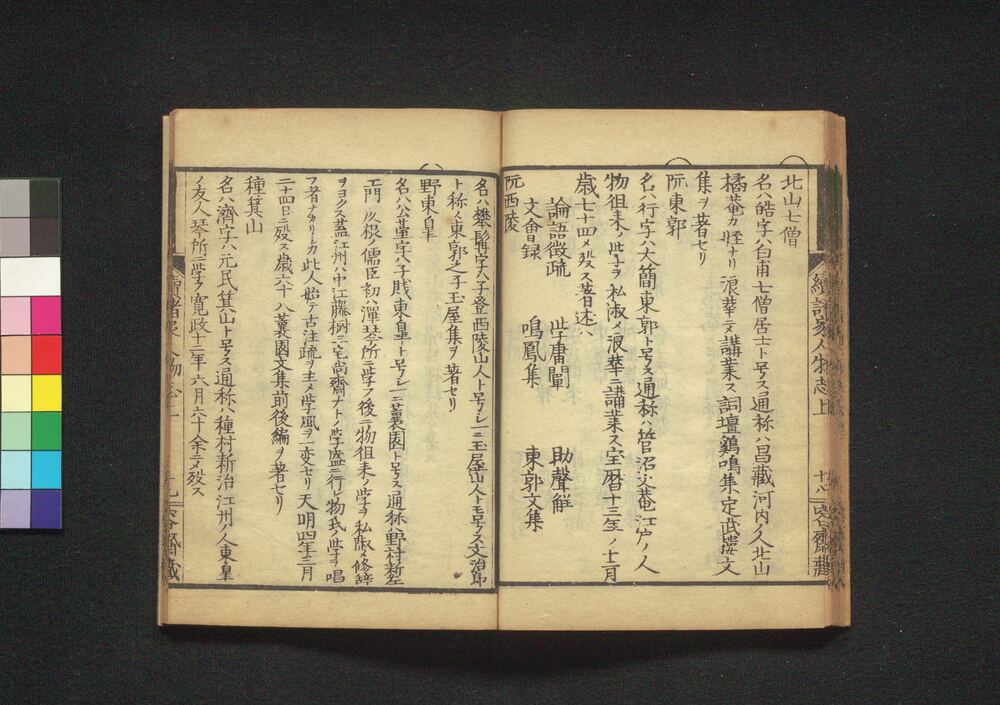 北山七僧
名ハ皓字ハ白甫七僧居士ト号ス通称ハ昌藏河内ノ人北山
橘菴カ姪ナリ浪華ニテ講業ス詞壇鷄鳴集定武樓文
集ヲ著セリ
阮東郭
名ハ行字ハ大簡東郭ト号ス通称ハ菅沼文菴江戸ノ人
物徂来ノ学ヲ私淑シ浪華ニ講業ス宝暦十三年ノ十二月
歳七十四ニメ殁ス著述ハ
論語徴疏 学庸闡 助聲解
文會録 鳴鳳集 東郭文集
阮西陵
名ハ攀髯字ハ子登西陵山人ト号シ一ニ玉屋山人トモ号ス文治郎
ト称ス東郭之子玉屋集ヲ著セリ
野東皐
名ハ公薹字ハ子賎東皐ト号シ一ニ蓑園ト号ス通称ハ野村新左
エ門彦根ノ儒臣初ハ澤琴所ニ学フ後ニ物徂来ノ学ヲ私淑メ修辞
ヲヨクス蓋江州ハ中江藤樹三宅尚齋ナトノ学盛ニ行レ物氏ノ学ヲ唱
フ者ナカリシカ此人始テ古注疏ヲ主メ学風ヲ一変セリ天明四年三月
二十四日ニ殁ス歳六十八蓑園文集前後編ヲ著セリ
種箕山
名ハ濟字ハ元民箕山ト号ス通称ハ種村新治江州ノ人東皐
ノ友人琴所ニ学フ寛政十二年六月六十余ニメ殁ス
續諸家人物志上 十八 容齋藏
續諸家人物志上 十九 容齋藏